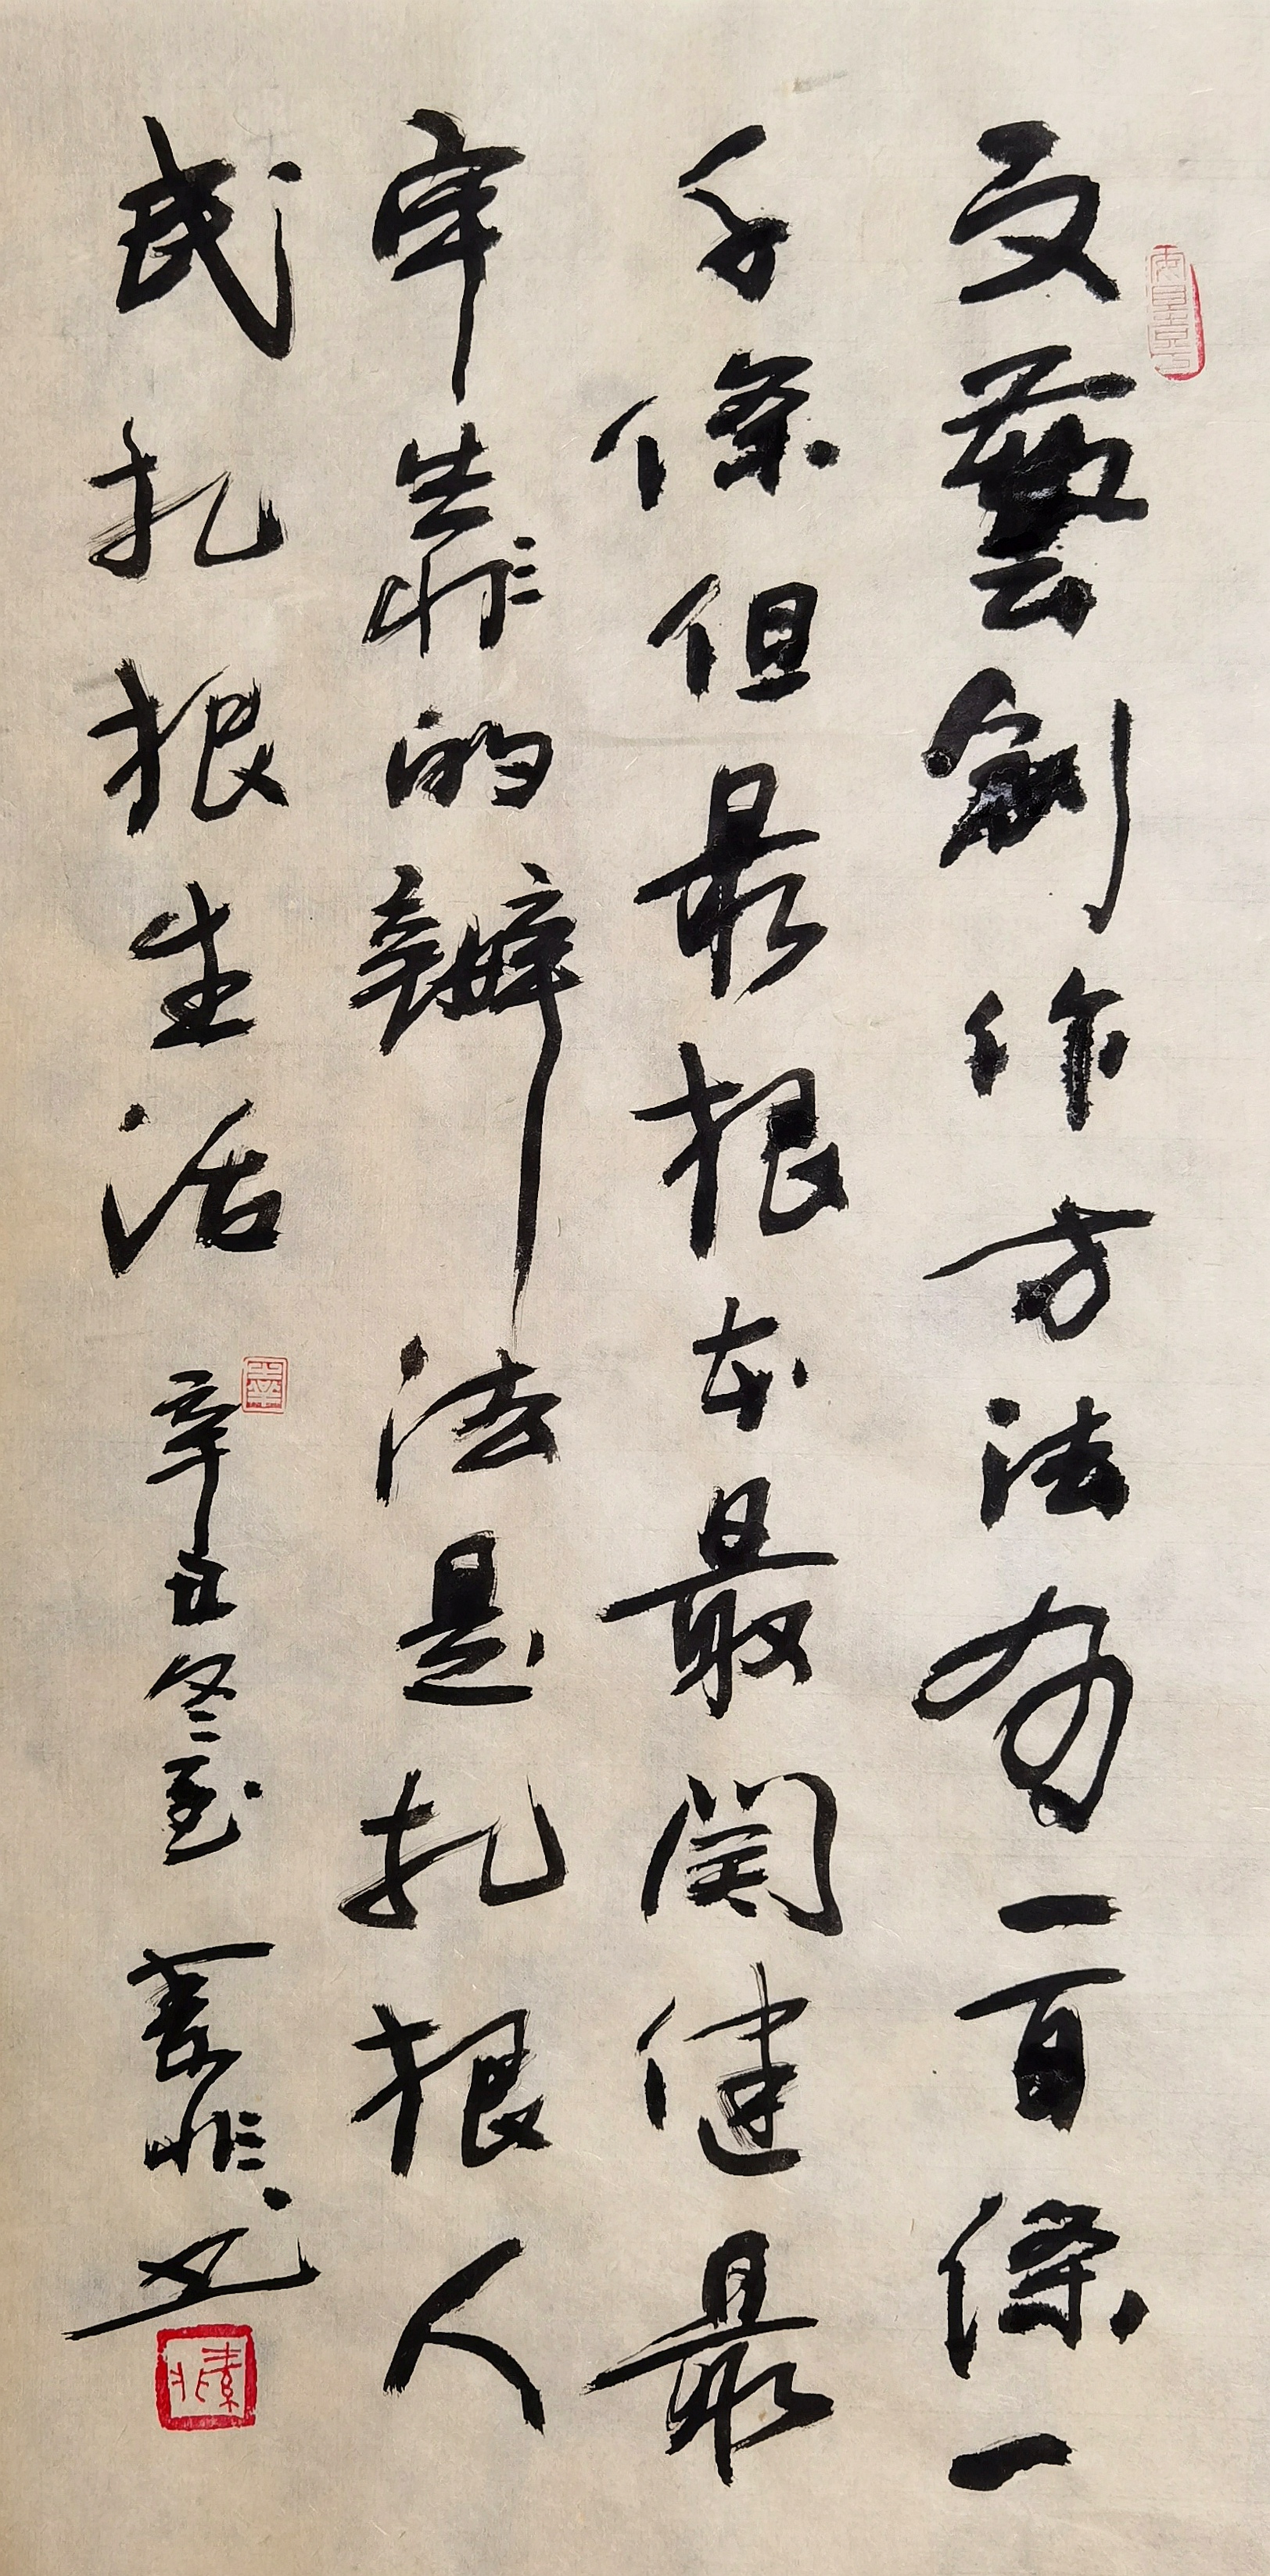 文藝創作方法有一百條一
千條但最根本最関健最
牢靠的辦法是扎根人
民扎根生活 辛丑冬至 素非书
素非